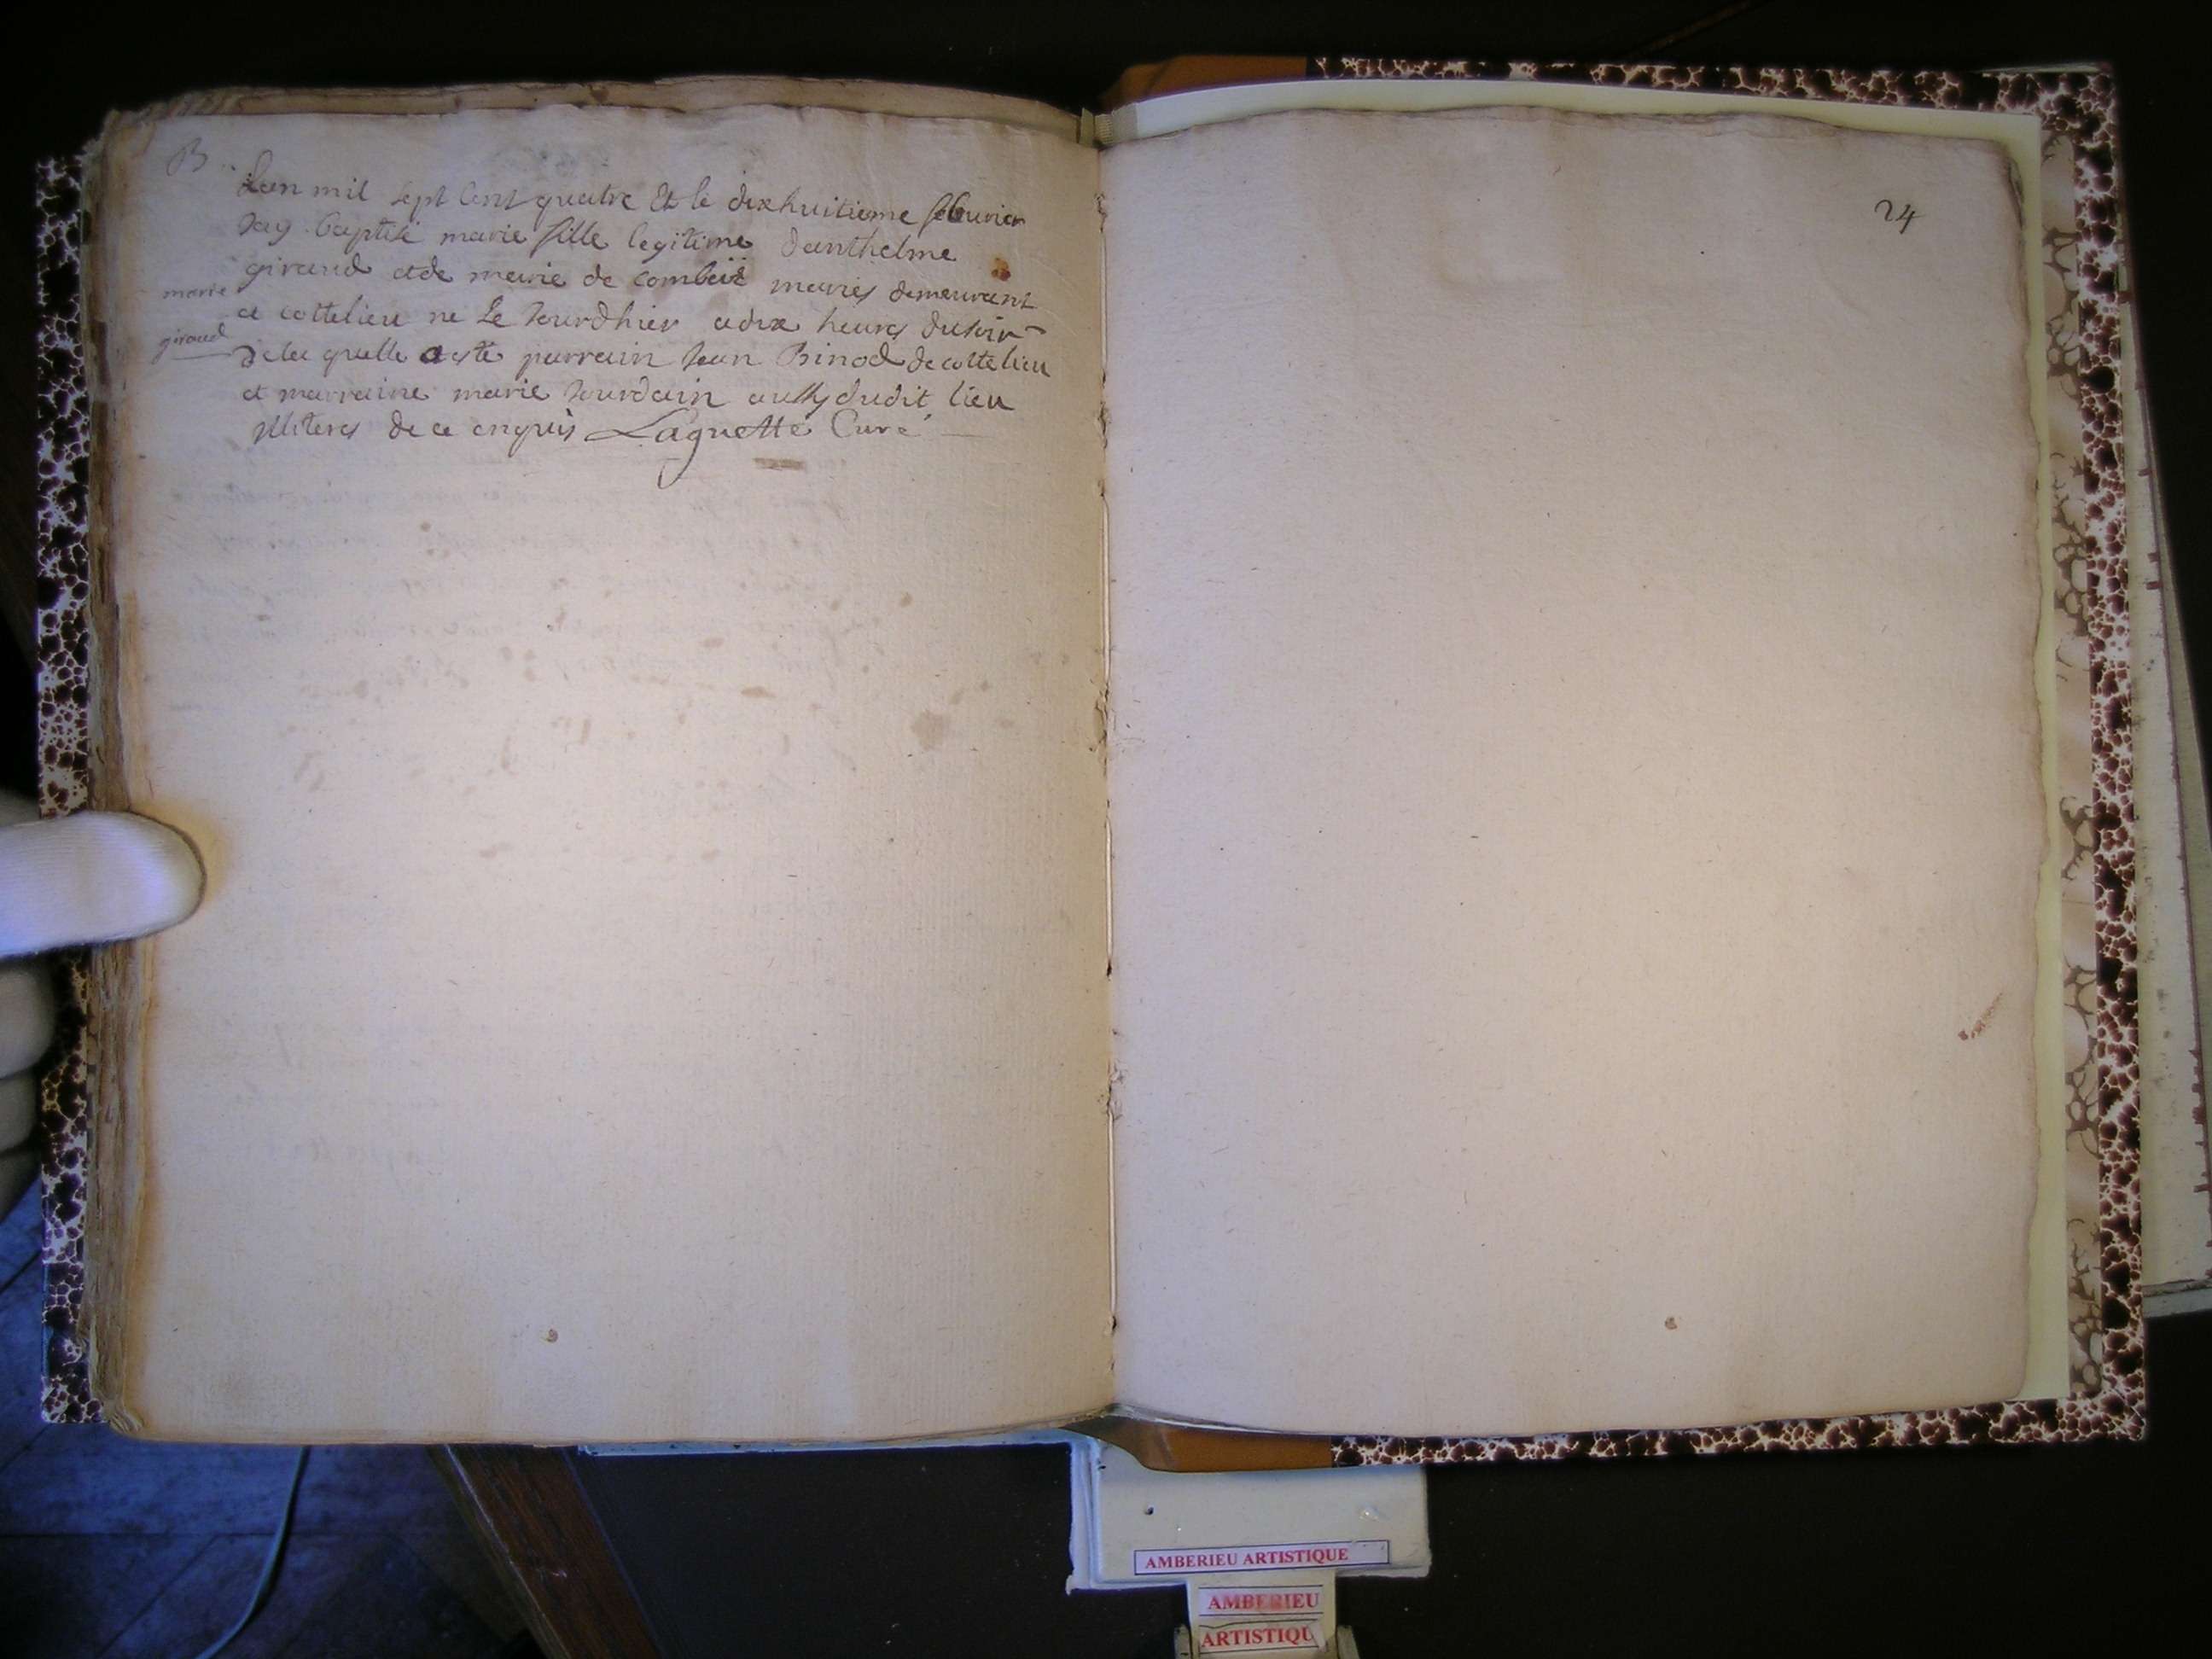 B
Lan mil sept cent quatre Et le dixhuitieme febvrier
Jay baptisé marie fille legitime danthelme
giraud et de marie de combaz mariés demeurant
marie
a cottelieu ne Le Jourdhier a dix heures du soir
giraud
de la quelle a esté parrain Jean Binod de cottelieu
et marraine marie Jourdain aussy dudit lieu
illiteres de ce enquis Laguette Curé
24
AMBERIEU ARTISTIQUE
AMBERIEU
ARTISTIQU